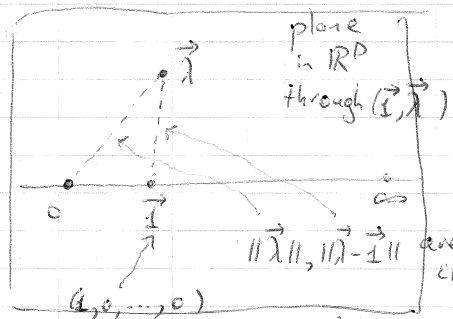 plane
in ℝᴰ
through (1⃗, λ⃗)
λ⃗
0
1⃗
∞
‖λ⃗‖, ‖λ⃗-1⃗‖
(1,0,...,0)